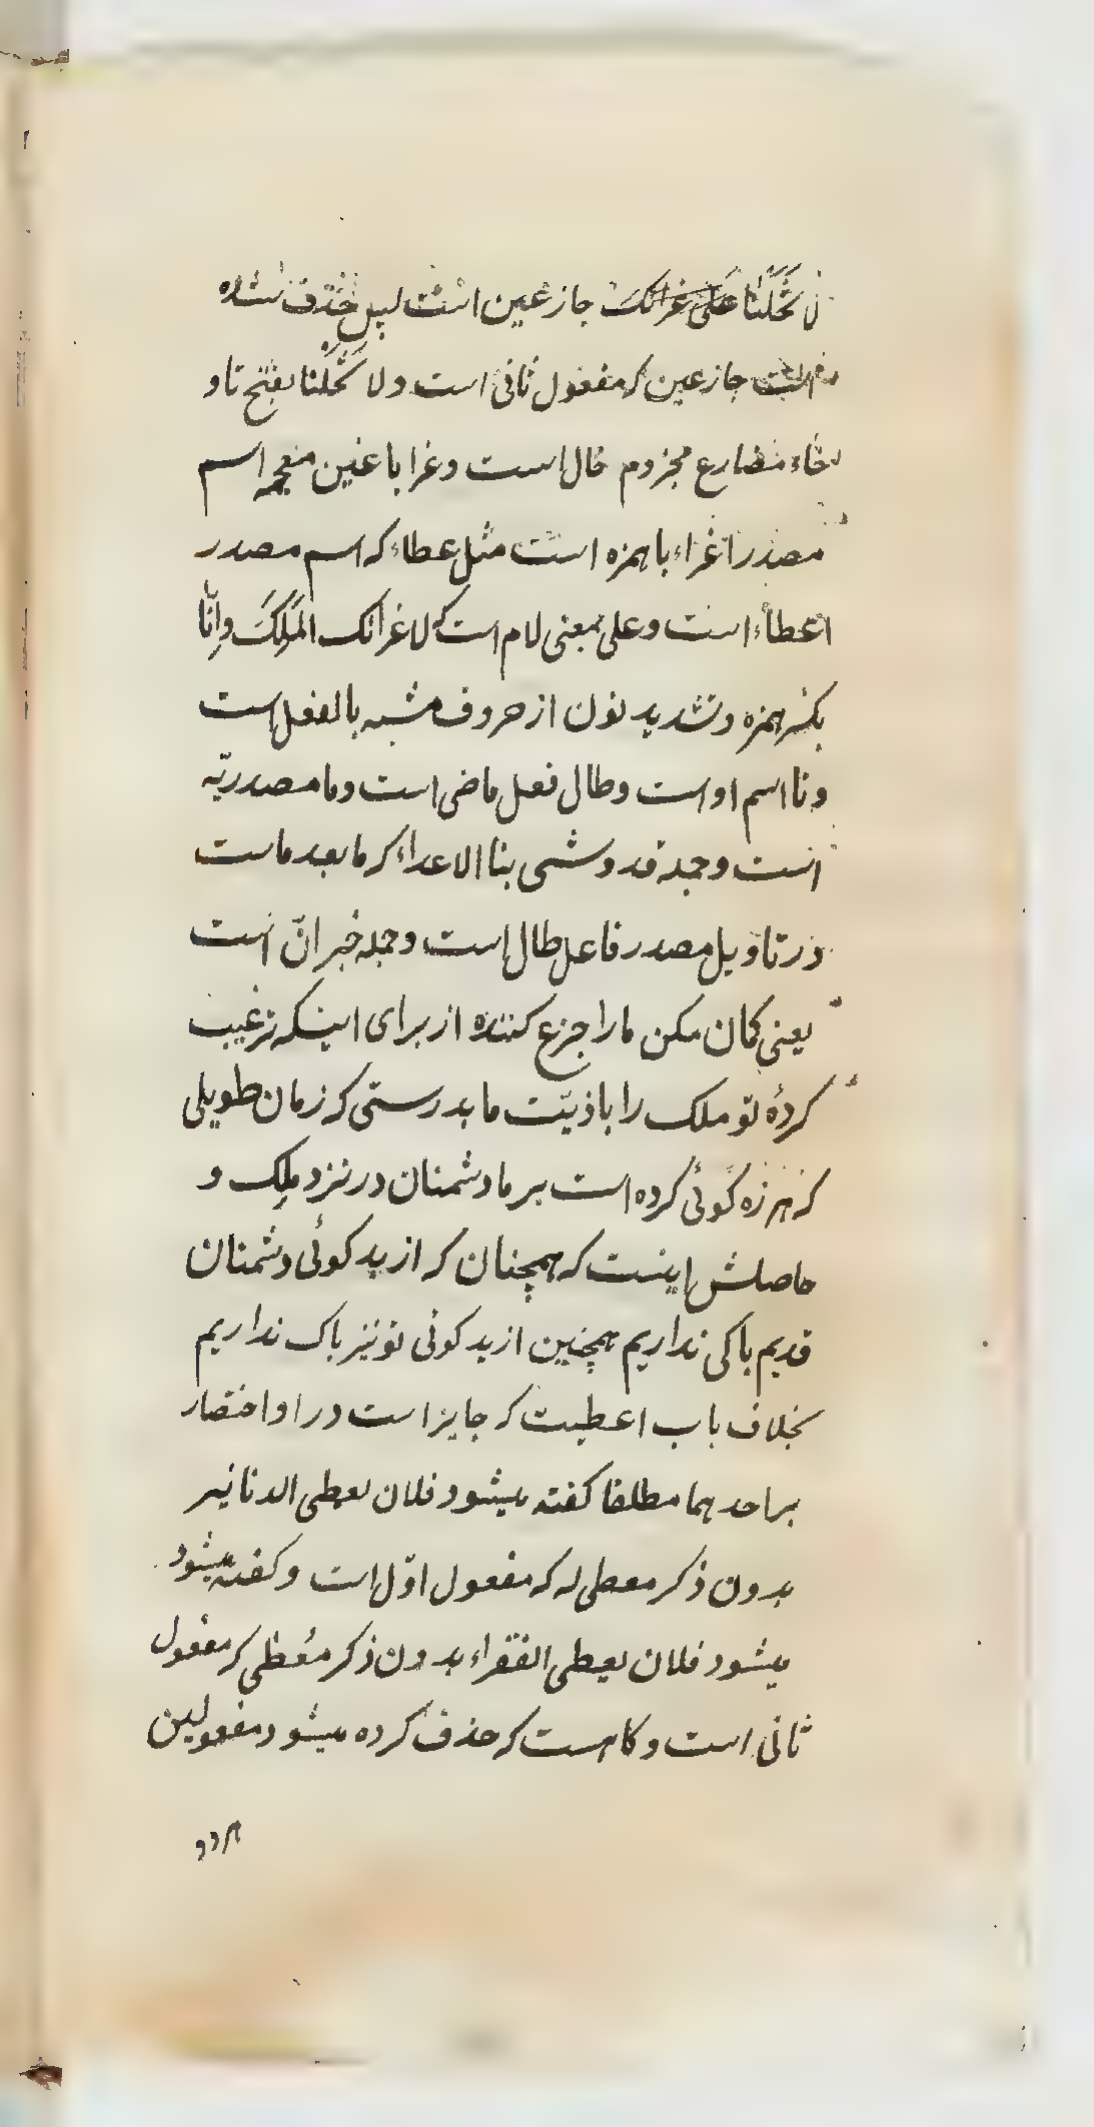 لَا تَخَلْنَا عَلَی غَرَائِکَ جازعین است پس حذف شده
است جازعین که مفعول ثانی است و لا تَخَلْنَا بفتح تا و
خاء مضارع مجزوم خال است و غرا با غین معجمه اسم
مصدر اغراء با همزه است مثل عطاء که اسم مصدر
اعطاء است و علی بمعنی لام است که لاغرائک المَلِکَ و اِنّا
بکسر همزه و تشدید نون از حروف مشبه بالفعل است
و نا اسم او است و طال فعل ماضی است و ما مصدریّه
است و جمله قد وشی بنا الاعداء که ما بعد ماست
در تاویل مصدر فاعل طال است و جمله خبر انّ است
یعنی کمان مکن ما را جزع کننده از برای اینکه ترغیب
کردهٔ تو ملک را باذیّت ما بدرستی که زمان طویلی
که هرزه کوئی کرده است بر ما دشمنان در نزد ملِک و
حاصلش اینست که همچنان که از بد کوئی دشمنان
قدیم باکی نداریم همچنین از بد کوئی تو نیز باک نداریم
بخلاف باب اعطیت که جایز است در او اختصار
بر احدهما مطلقا کفته میشود فلان یعطی الدنانیر
بدون ذکر معطی له که مفعول اوّل است و کفته میشود
میشود فلان یعطی الفقراء بدون ذکر مُعطی که مفعول
ثانی است و کاهست که حذف کرده میشود مفعولین
هر دو